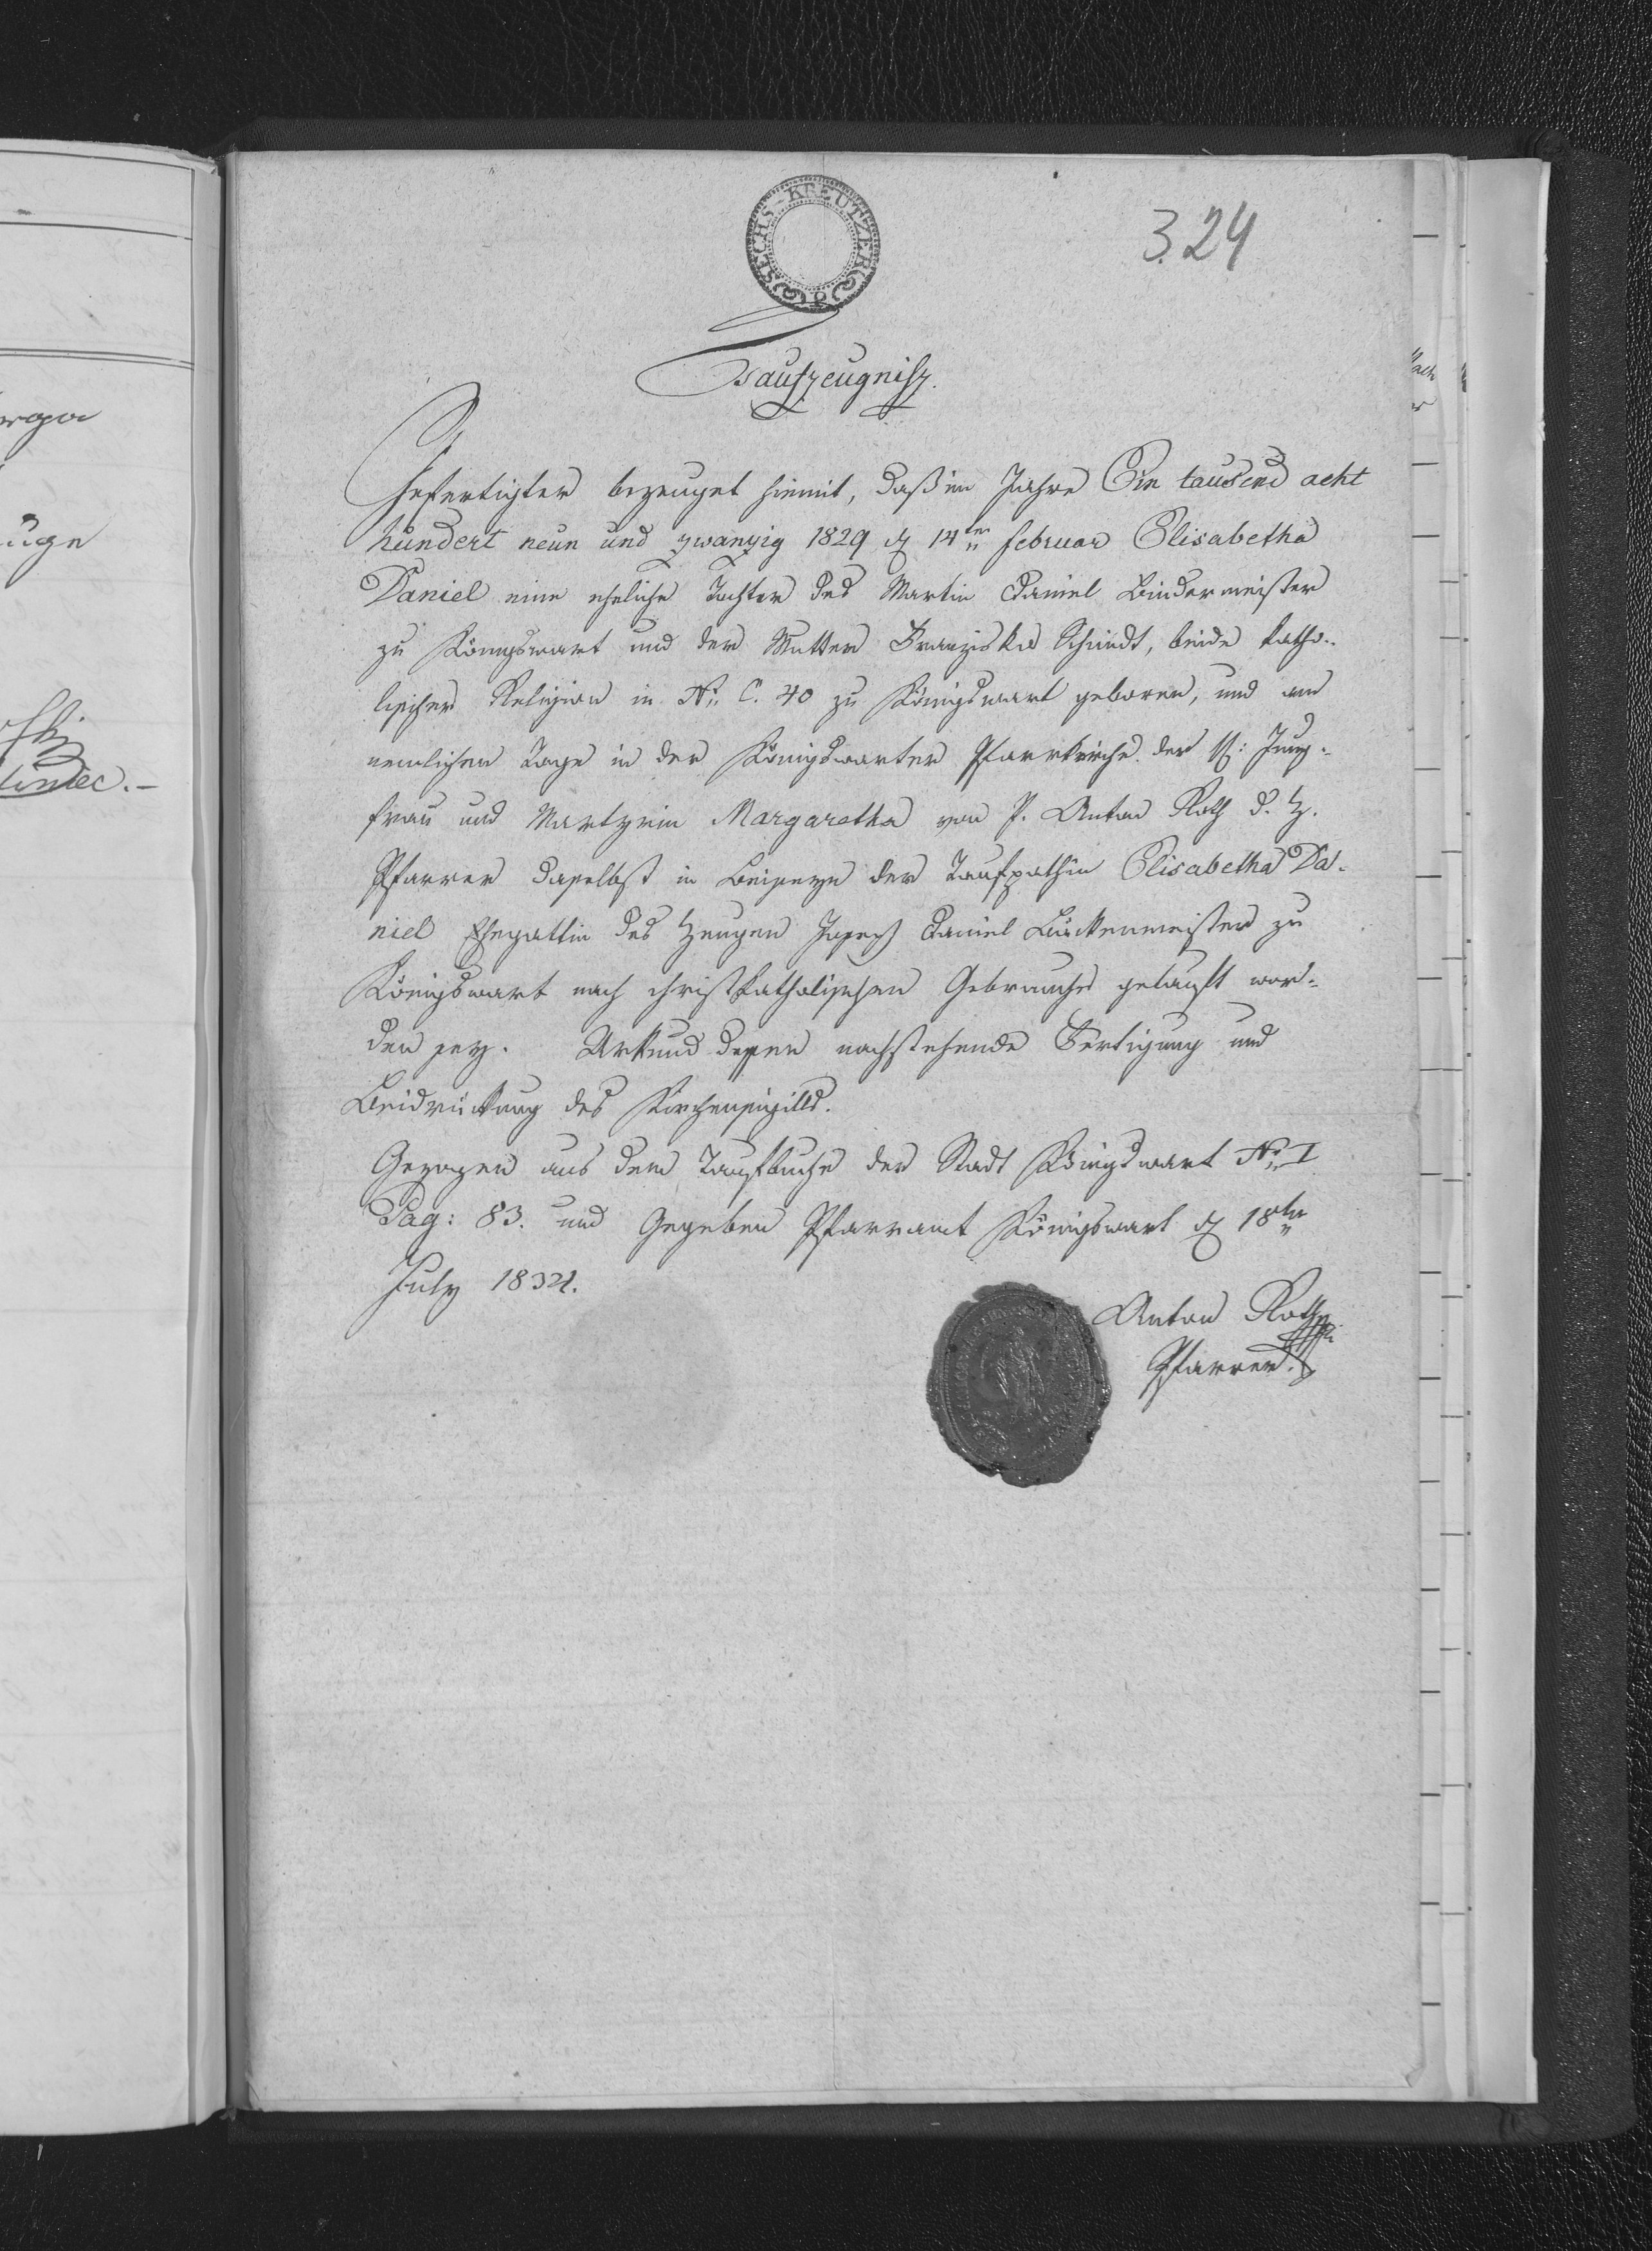 SECHS-KREUTZER
3.24
Taufzeugniß.
Gefertigter bezeuget hiemit, daß im Jahre Ein tausend acht
hundert neun und zwanzig 1829 d 14ten Februar Elisabetha
Daniel eine eheliche Tochter des Martin Daniel Bindermeister
zu Königswart und der Mutter Franziska Schmidt, beide katho-
lischer Religion in No C. 40 zu Königswart geboren, und am
nemlichen Tage in der Königswarter Pfarrkirche der H: Jung-
frau und Martyrin Margaretha von P. Anton Roth d. Z.
Pfarrer daselbst in Beiseyn der Taufpathin Elisabetha Da-
niel Ehegattin des Zeugen Joseph Daniel zu
Königswart nach christkatholischen Gebrauche getauft wor-
den sey. Urkund dessen nachstehende Fertigung und
Beidrückung des Kirchensigills.
Gezogen aus dem Taufbuche der Stadt Königswart No I
Pag: 83. und Gegeben Pfarramt Königswart d 18ten
July
Anton Roth
Pfarrer.